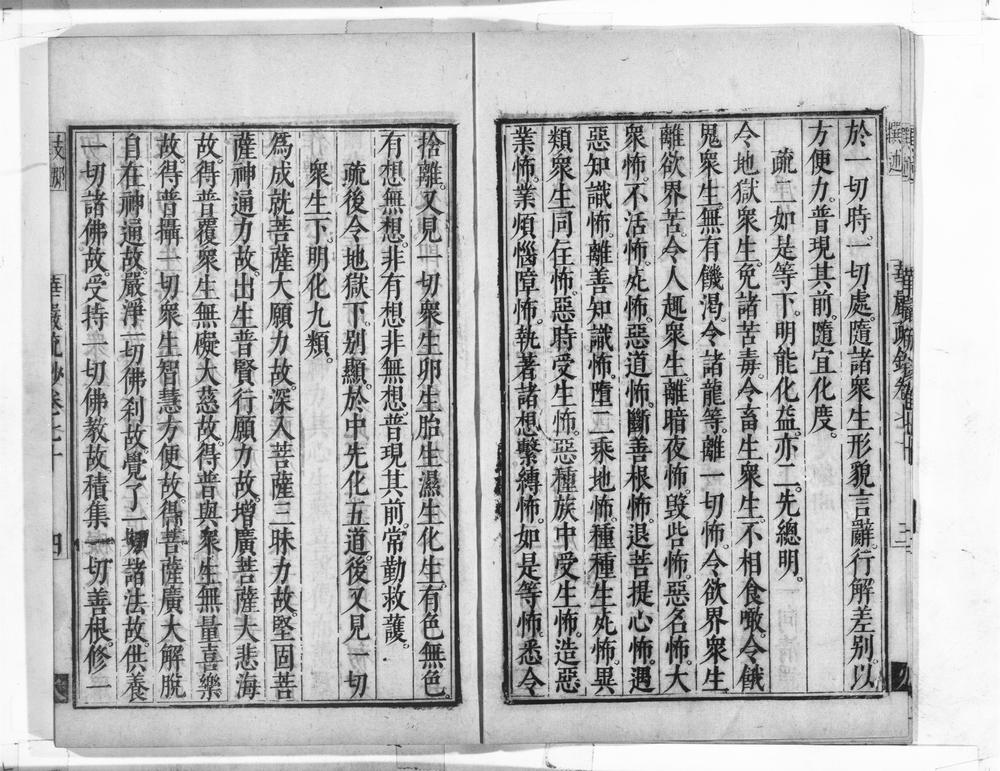 於一切時。一切處。隨諸衆生形貌言辭。行解差别。以
方便力。普現其前。隨宜化度。
疏二如是等下。明能化益。亦二。先總明。
令地獄衆生。免諸苦毒。令畜生衆生。不相食噉。令餓
鬼衆生。無有饑渴。令諸龍等。離一切怖。令欲界衆生
離欲界苦。令人趣衆生。離暗夜怖。毀呰怖。惡名怖。大
衆怖。不活怖。死怖。惡道怖。斷善根怖。退菩提心怖。遇
惡知識怖。離善知識怖。墮二乘地怖。種種生死怖。異
類衆生同住怖。惡時受生怖。惡種族中受生怖。造惡
業怖。業煩惱障怖。執著諸想繫縛怖。如是等怖。悉令
捨離。又見一切衆生卵生胎生濕生化生。有色無色。
有想無想。非有想非無想。普現其前。常勤救護。
疏後令地獄下。别顯。於中先化五道。後又見一切
衆生下。明化九類。
爲成就菩薩大願力故。深入菩薩三昧力故。堅固菩
薩神通力故。出生普賢行願力故。增廣菩薩大悲海
故。得普覆衆生無礙大慈故。得普與衆生無量喜樂
故。得普攝一切衆生智慧方便故。得菩薩廣大解脫
自在神通故。嚴淨一切佛刹故。覺了一切諸法故。供養
一切諸佛故。受持一切佛教故。積集一切善根。修一
華嚴疏鈔卷七十
四